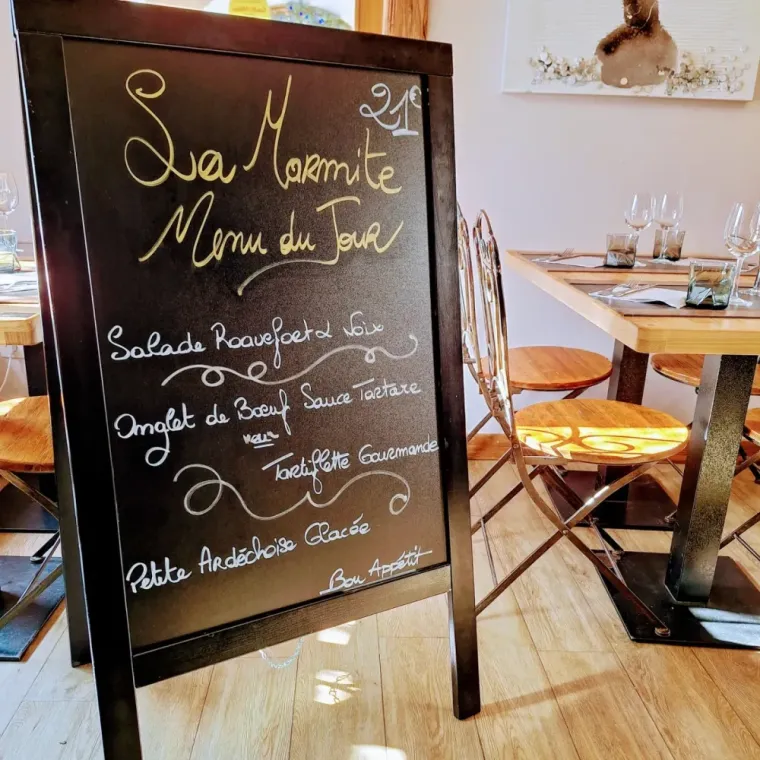 21€
La Marmite
Menu du Jour
Salade Roquefort & Noix
Onglet de Bœuf Sauce Tartare
"ou"
Tartiflette Gourmande
Petite Ardéchoise Glacée
Bon Appétit